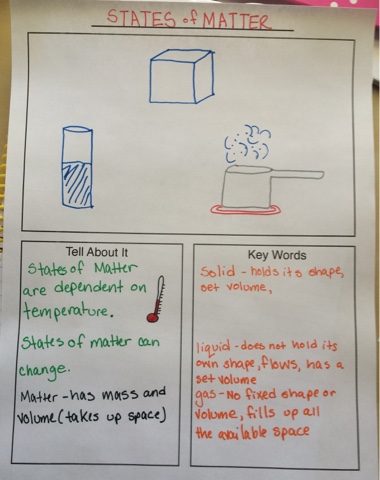 STATES of MATTER
Tell About It
States of Matter
are dependent on
temperature.
States of matter can
change.
Matter - has mass and
volume (takes up space)
Key Words
Solid - holds its shape,
set volume,
liquid - does not hold its
own shape, flows, has a
set volume
gas - No fixed shape or
volume, fills up all
the available space